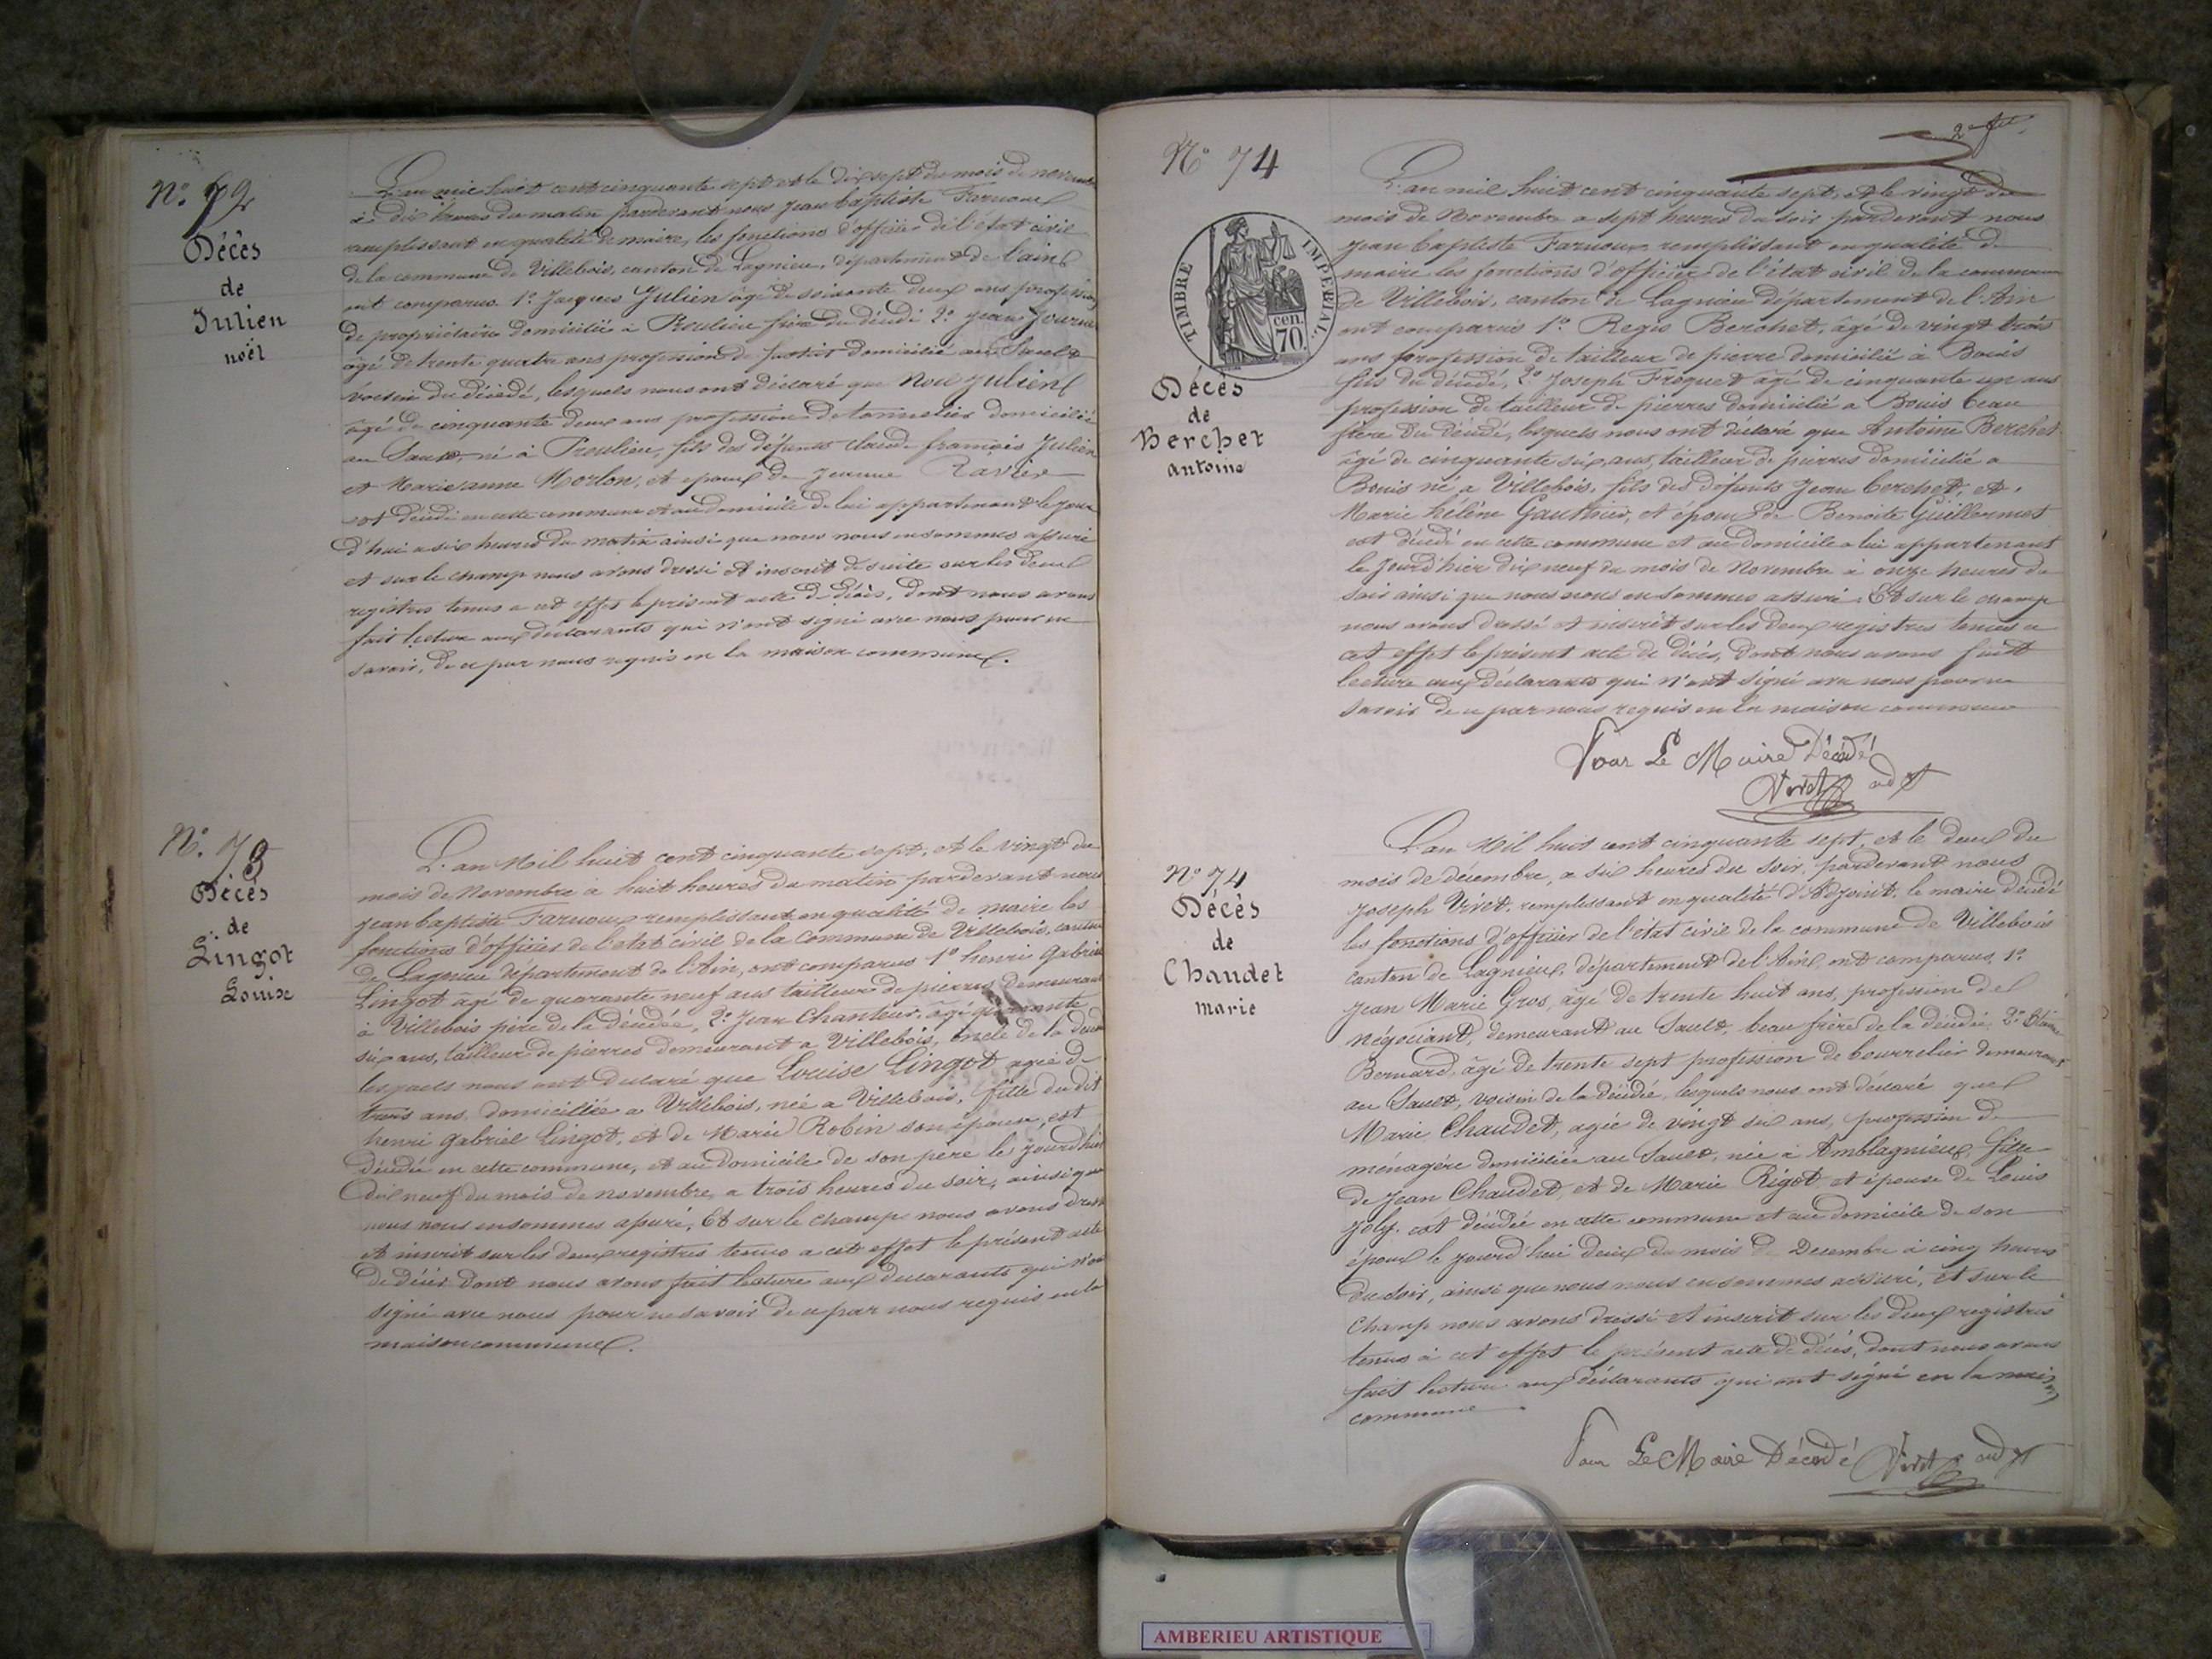 N° 72
Décès
de
Julien
noël
L'an mil huit cent cinquante sept et le dix sept du mois de novembre
à dix heures du matin pardevant nous Jean baptiste Farnoux
remplissant en qualité de maire, les fonctions d'officier de l'état civil
de la commune de Villebois, canton de Lagnieu, département de l'ain
ont comparus 1° Jacques Julien âgé de soixante deux ans profession
de propriétaire domicilié à Proulieu frère du décédé 2° Jean
âgé de trente quatre ans profession de domicilié au Sault
voisin du décédé, lesquels nous ont déclaré que Noel Julien
âgé de cinquante deux ans profession de tonnelier domicilié
au Sault, né à Proulieu, fils des défunts claude françois Julien
et Marie anne Morlon, et epoux de Jeanne Ravier
est décédé en cette commune et au domicile de lui appartenant le jour
d'hui a six heures du matin ainsi que nous nous en sommes assuré
et sur le champ nous avons dressé et inscrit de suite sur les deux
registres tenus a cet effet le présent acte de décès, dont nous avons
fait lecture aux déclarants qui n'ont signé avec nous pour ne
savoir, de ce par nous requis en la maison commune.
N° 73
Décès
de
Lingot
Louise
L'an Mil huit cent cinquante sept, et le vingt du
mois de Novembre à huit heures du matin pardevant nous
Jean baptiste Farnoux remplissant en qualité de maire les
fonctions d'officier de l'etat civil de la commune de Villebois, canton
de Lagnieu département de l'Ain, ont comparus 1° henri Gabriel
Lingot âgé de quarante neuf ans tailleur de pierres demeurant
à Villebois père de la décédée, 2° Jean Chanteur, âgé quarante
six ans, tailleur de pierres demeurant a Villebois, oncle de la
lesquels nous ont déclaré que Louise Lingot agée de
trois ans, domiciliée a Villebois, née a Villebois, fille du dit
henri gabriel Lingot, et de Marie Robin son épouse, est
décédée en cette commune, et au domicile de son pere le jourd'hui
dix neuf du mois de novembre a trois heures du soir, ainsi que
nous nous en sommes assuré, Et sur le champ nous avons dressé
et inscrit sur les deux registres tenus a cet effet le présent acte
de décès dont nous avons fait lecture aux déclarants qui n'ont
signé avec nous pour ne savoir de ce par nous requis en la
maison commune.
2e
N° 74
TIMBRE IMPÉRIAL
cen.
70.
Décès
de
Berchet
antoine
L'an mil huit cent cinquante sept, et le vingt du
mois de Novembre a sept heures du soir pardevant nous
Jean baptiste Farnoux remplissant en qualité de
maire les fonctions d'officier de l'état civil de la commune
de Villebois, canton de Lagnieu département de l'Ain
ont comparus 1° Regis Berchet, âgé de vingt trois
ans profession de tailleur de pierre domicilié à Bouis
fils du décédé, 2° Joseph Froquet âgé de cinquante un ans
profession de tailleur de pierres domicilié a Bouis beau
frère du décédé, lesquels nous ont déclaré que Antoine Berchet
âgé de cinquante six, ans, tailleur de pierres domicilié a
Bouis né a Villebois, fils des defunts Jean berchet, et
Marie hélène Gauthier, et époux de Benoite Guillermet
est décédé en cette commune et au domicile a lui appartenant
le jourd'hier dix neuf du mois de Novembre à onze heures du
soir ainsi que nous nous en sommes assuré, Et sur le champ
nous avons dressé et inscrit sur les deux registres tenus a
cet effet le présent acte de décès, dont nous avons fait
lecture aux déclarants qui n'ont signé avec nous pour ne
savoir de ce par nous requis en la maison commune
Pour Le Maire Décédé
Viret adjt
N° 74
Décès
de
Chaudet
marie
L'an Mil huit cent cinquante sept, et le deux du
mois de décembre, a six heures du soir, pardevant nous
Joseph Viret, remplissant en qualité d'Adjoint, le maire décédé
les fonctions d'officier de l'état civil de la commune de Villebois
canton de Lagnieu, département de l'Ain, ont comparus, 1°
Jean Marie Gros, âgé de trente huit ans, profession de
négociant, demeurant au Sault, beau frère de la décédée, 2°
Bernard, âgé de trente sept profession de bourrelier demeurant
au Sault, voisin de la décédée, lesquels nous ont déclaré que
Marie Chaudet, agée de vingt six ans, profession de
ménagère domiciliée au Sault, née à Amblagnieu, fille
de Jean Chaudet, et de Marie Rigot et épouse de Louis
Joly. est décédée en cette commune et au domicile de son
époux le jourd'hui deux du mois de Decembre à cinq heures
du soir, ainsi que nous nous en sommes assuré, et sur le
champ nous avons dressé et inscrit sur les deux registres
tenus à cet effet le présent acte de décès, dont nous avons
fait lecture aux déclarants qui ont signé en la maison
commune.
Pour Le Maire Décédé Viret adjt
AMBERIEU ARTISTIQUE